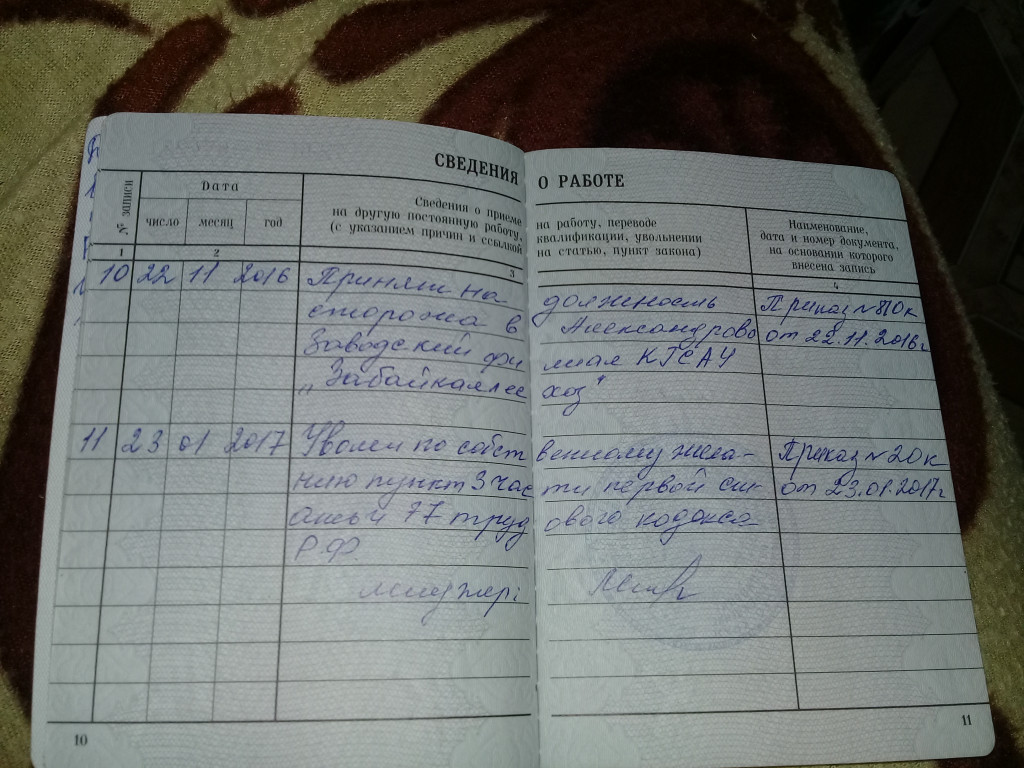 СВЕДЕНИЯ О РАБОТЕ
№ записи
Дата
число месяц год
Сведения о приеме на работу, переводе
на другую постоянную работу, квалификации, увольнении
(с указанием причин и ссылкой на статью, пункт закона)
Наименование,
дата и номер документа,
на основании которого
внесена запись
1 2 3 4
10 22 11 2016 Принят на должность Приказ №810к
сторожа в Александрово от 22.11.2016г
Заводский фи лиал КГСАУ
„Забайкаллес хоз"
11 23 01 2017 Уволен по собст венному жела- Приказ №20к
нию пункт 3 час ти первой от 23.01.2017г
77 труд ового кодекса
Р.Ф.
10
11